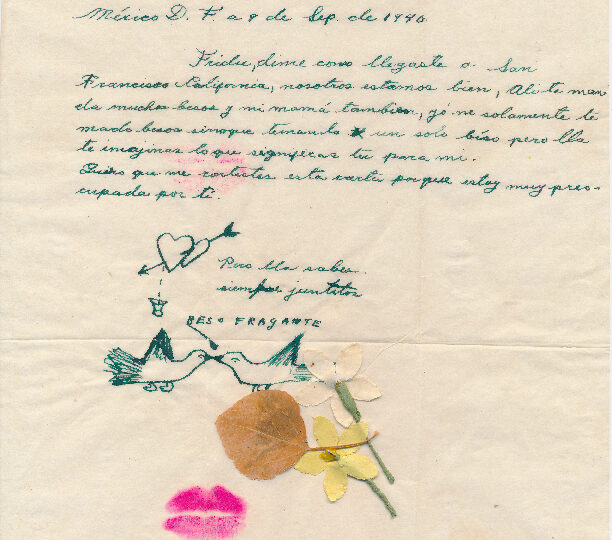 México D. F. a 9 de Sep. de 1940.
Fridu, dime como llegaste a San
Francisco California, nosotros estamos bien, Ali te man
da muchos besos y mi mamá tambien, yó no solamente te
mado besos sinoque temando un solo béso pero lla
te imajinas lo que significas tu para mi.
Quiero que me contestes esta carta porque estoy muy preo-
cupada por tí.
Pero lla sabes
siempre juntitos
BESO FRAGANTE